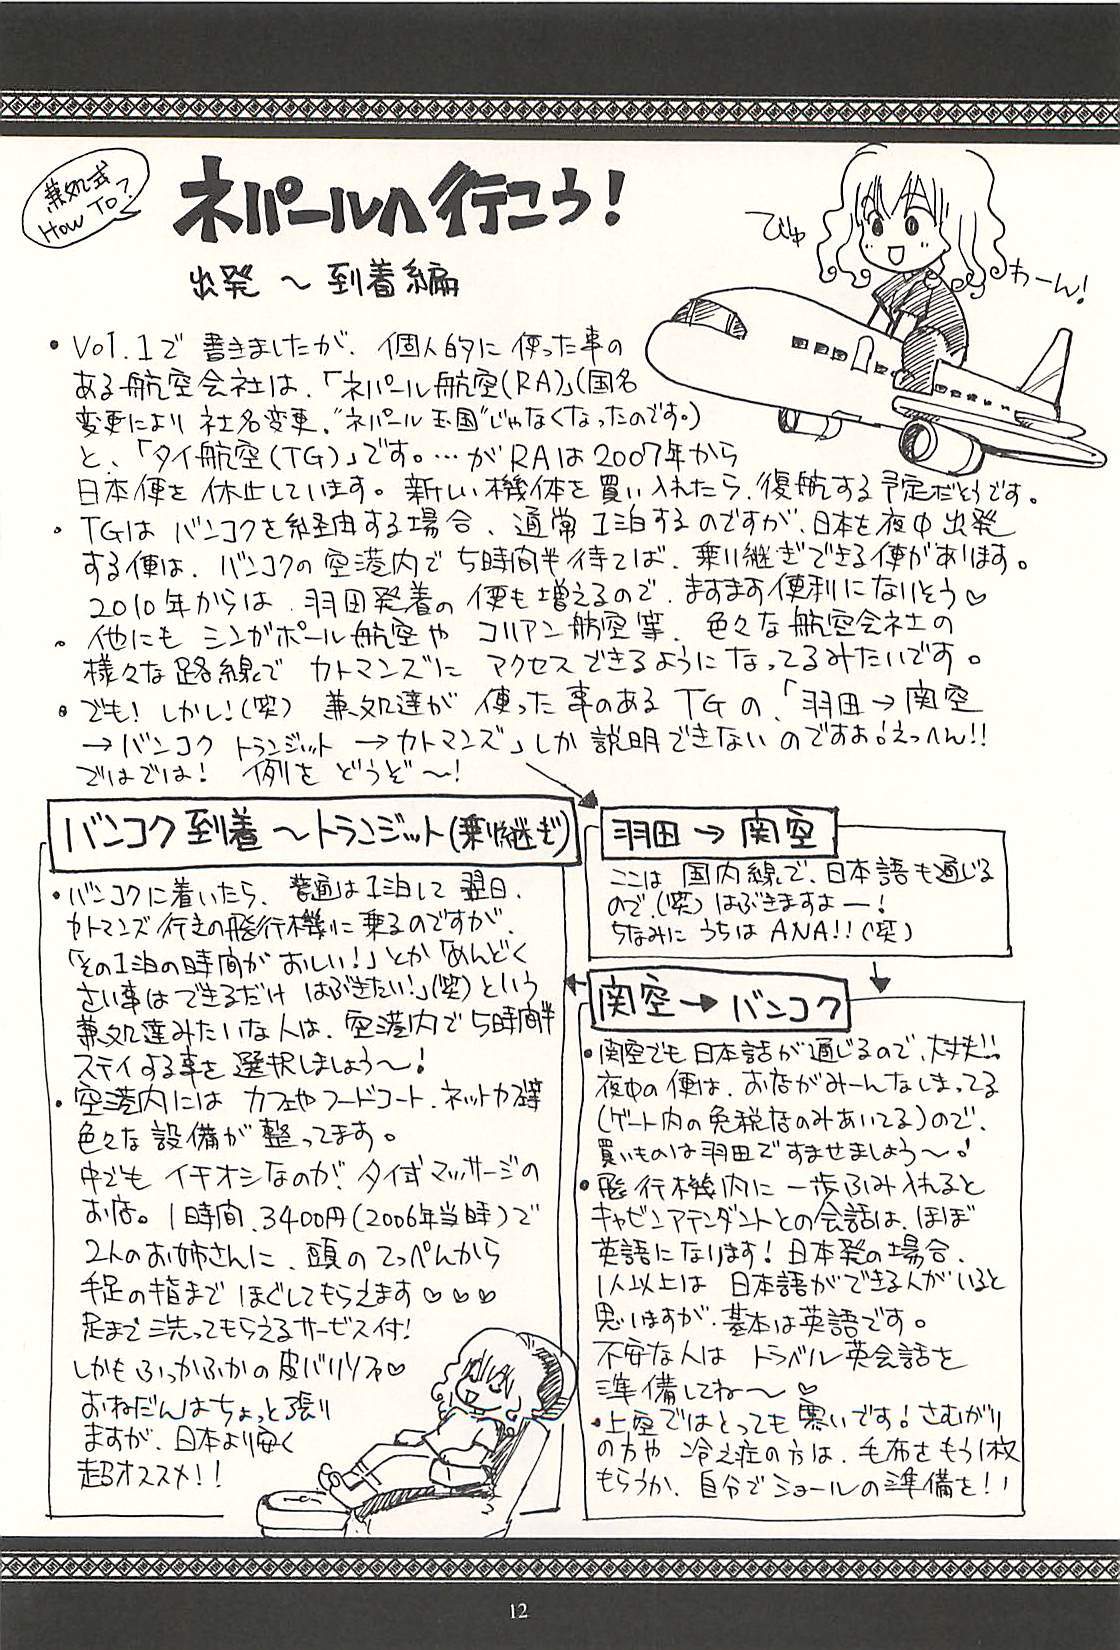 兼処式
How To?
ネパールへ行こう!
出発 〜 到着編
びゅ
わーん!
• Vol.1で 書きましたが、個人的に 使った事の
ある航空会社は、「ネパール航空(RA)」(国名
変更により 社名変更。"ネパール王国"じゃなくなったのです。)
と、「タイ航空(TG)」です。…が RAは 2007年から
日本便を 休止しています。新しい機体を買い入れたら、復航する予定だそうです。
• TGは バンコクを経由する場合、通常1泊するのですが、日本を夜中出発
する便は、バンコクの空港内で 5時間半待てば、乗り継ぎできる便があります。
2010年からは、羽田発着の便も増えるので、ますます便利になりそう♡
• 他にも シンガポール航空や コリアン航空等、色々な航空会社の
様々な路線で カトマンズに アクセスできるようになってるみたいです。
• でも!しかし!(笑) 兼処達が 使った事のある TGの、「羽田→関空
→バンコク トランジット →カトマンズ」しか説明できないのですよ!えっへん!!
ではでは! 例を どうぞ〜!
羽田 → 関空
ここは 国内線で、日本語も通じる
ので、(笑) はぶきますよー!
ちなみに うちは ANA!!(笑)
関空 → バンコク
• 関空でも 日本語が通じるので、大丈夫!!
夜中の便は、お店がみーんなしまってる
(ゲート内の免税店のみあいてる)ので、
買いものは羽田ですませましょう〜!
• 飛行機内に 一歩ふみ入れると
キャビンアテンダントとの会話は、ほぼ
英語になります! 日本発の場合、
1人以上は 日本語ができる人がいると
思いますが、基本は英語です。
不安な人は トラベル英会話を
準備してね〜♡
• 上空ではとっても寒いです! さむがり
の方や 冷え症の方は、毛布をもう1枚
もらうか、自分でショールの準備を!!
バンコク到着 〜トランジット(乗り継ぎ)
• バンコクに着いたら、普通は1泊して 翌日、
カトマンズ行きの飛行機に乗るのですが、
「その1泊の時間が おしい!」とか「めんどく
さい事はできるだけ はぶきたい!」(笑)という
兼処達みたいな人は、空港内で5時間半
ステイする事を選択しましょう〜!
• 空港内には カフェやフードコート、ネットカフェ等
色々な設備が整ってます。
中でも イチオシなのが、タイ式マッサージの
お店。1時間、3400円(2006年当時)で
2人のお姉さんに、頭のてっぺんから
手足の指まで ほぐしてもらえます♡♡♡
足まで洗ってもらえるサービス付!
しかもふっかふかの皮バリソファ♡
おねだんはちょっと張り
ますが、日本より安く
超オススメ!!
12